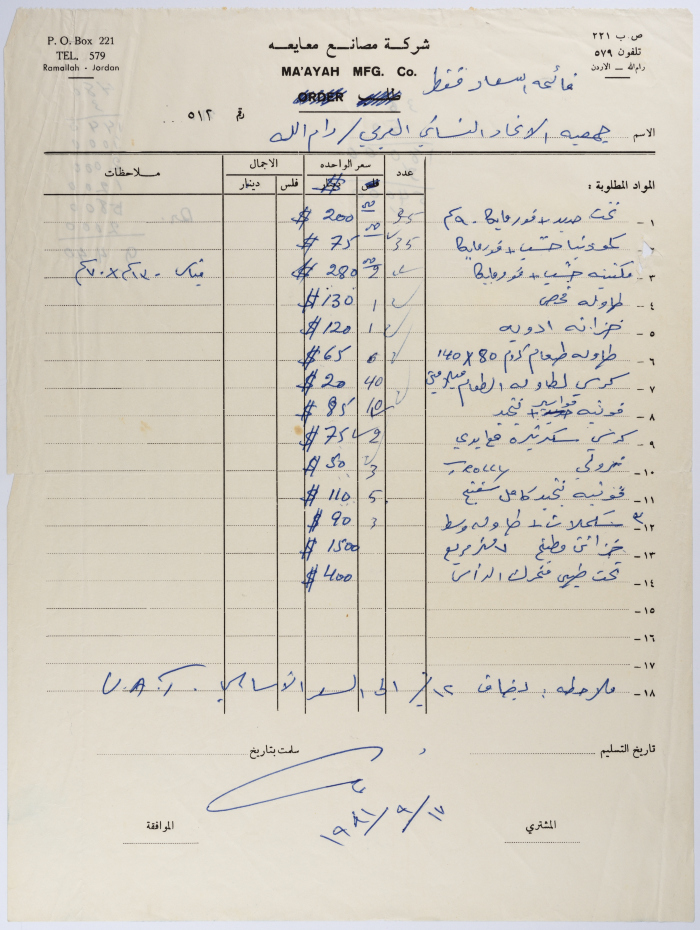 P. O. Box 221
TEL. 579
Ramallah - Jordan
شركة مصانع معايعه
MA'AYAH MFG. Co.
ORDER طلب
ص ب ٢٢١
تلفون ٥٧٩
رام الله - الاردن
قائمه اسعار فقط
رقم ٥١٢
الاسم جمعيه الاتحاد النسائي العربي / رام الله
المواد المطلوبة : عدد سعر الواحده فلس الاجمال فلس دينار ملاحظات
١ - تخت حديد + فورمايكا ٩٠ سم 35 $ 200
٢ - كومدينا خشب + فورمايكا 35 $ 75
٣ - مكتبه خشب + فورمايكا 2 $ 280 قياس ١٣٠ سم × ٧٠ سم
٤ - طاوله فحص 1 $ 130
٥ - خزانه ادويه 1 $ 120
٦ - طاوله طعام كروم 80 × 140 6 $ 65
٧ - كرسي لطاوله الطعام 40 $ 20
٨ - فوتيه + تنجيد 10 $ 85
٩ - كرسي سكرتيره 2 $ 75
١٠ - 3 $ 50
١١ - فوتيه تنجيد كامل سفنج 5 $ 110
١٢ - ٣ سكملات + طاوله وسط 3 $ 90
١٣ - خزائن مطبخ متر مربع $ 1500
١٤ - تخت طبي متحرك الراس $ 400
١٥ -
١٦ -
١٧ -
١٨ - ملاحظه : يضاف ١٢٪ الى السعر الأساسي
تاريخ التسليم
سلمت بتاريخ
١٧ / ٩ / ١٩٨١
المشتري
الموافقة